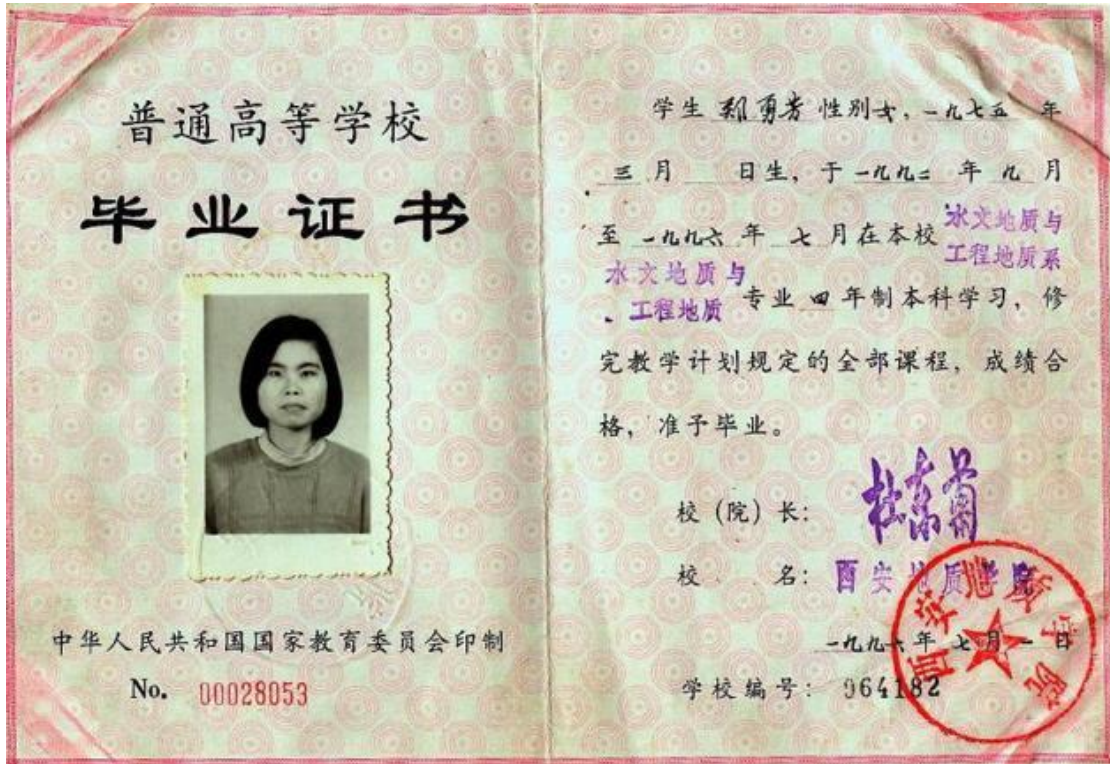 普通高等学校
毕业证书
中华人民共和国国家教育委员会印制
No. 00028053
学生 郑勇芳 性别女，一九七五 年
三月 日生，于 一九九二 年 九 月
至 一九九六 年 七 月在本校 水文地质与工程地质系
水文地质与工程地质 专业 四 年制本科学习，修
完教学计划规定的全部课程，成绩合
格，准予毕业。
校（院）长：
校 名：西安地质学院
一九九六年 七月 一 日
学校编号：964182
西安地质学院